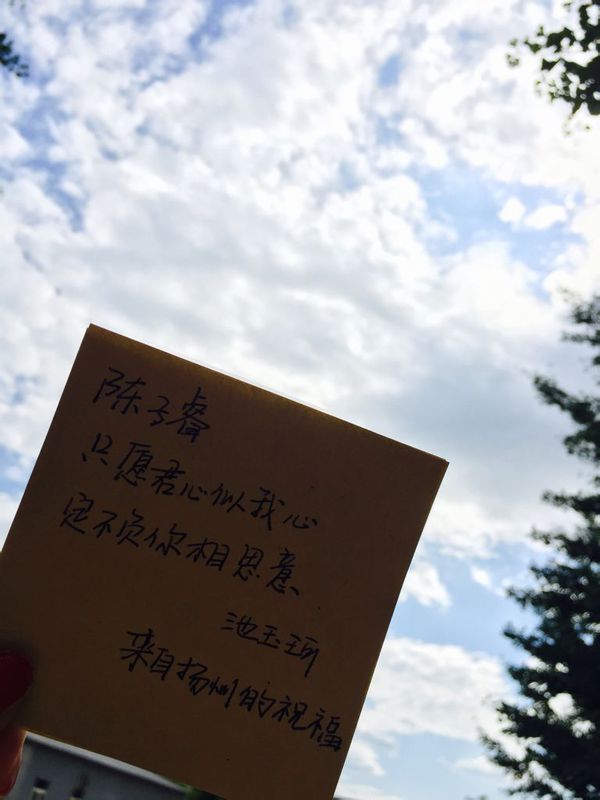 陈子睿
只愿君心似我心
定不负你相思意
池玉珂
来自扬州的祝福